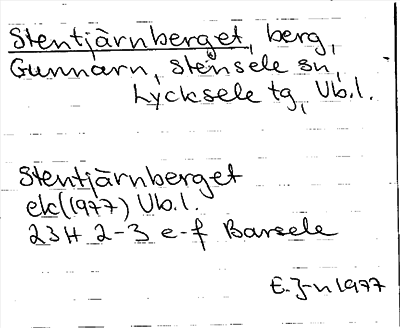 Stentjärnberget, berg,
Gunnarn, Stensele sn,
Lycksele tg, Vb.l.
Stentjärnberget
ek (1977) Vb.l.
23H 2-3 e-f Barsele
E. J-n 1977